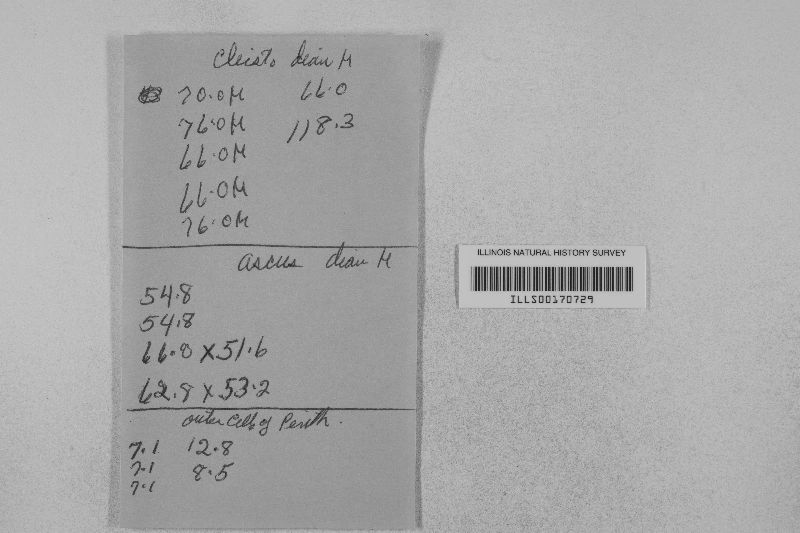 Cleisto diam µ
70.0 µ 66.0
76.0 µ 118.3
66.0 µ
66.0 µ
76.0 µ
ascus diam µ
54.8
54.8
66.8 x 51.6
62.8 x 53.2
outer cells of Perith.
7.1 12.8
7.1 8.5
7.1
ILLINOIS NATURAL HISTORY SURVEY
ILLS00170729